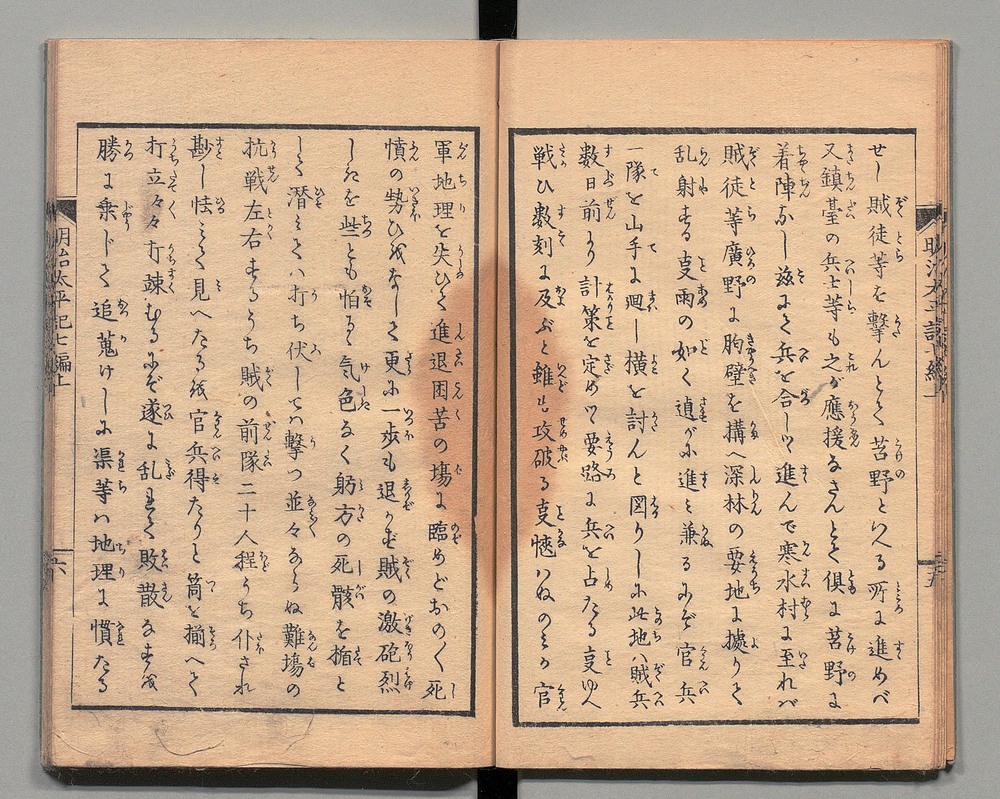 せし賊徒等を撃んとて苔野といへる所に進めバ
又鎮臺の兵士等も之が應援なさんとて倶に苔野に
着陣なし玆にて兵を合しつゝ進んで寒水村に至れバ
賊徒等廣野に胸壁を搆へ深林の要地に據りて
乱射する叓雨の如く道がに進ミ兼るにぞ官兵
一隊を山手に廻し横を討んと図りしに此地ハ賊兵
数日前より計策を定めつゝ要路に兵を占たる叓ゆへ
戦ひ数刻に及ぶと雖も攻破る叓愜ハぬのミか官
軍地理を失ひて進退困苦の塲に臨めどおのへ死
憤の勢ひなれバなしく更に一歩も退かず賊の激砲烈
しきを些とも怕るゝ気色なく躬方の死骸を楯と
して潜ミてハ打ち伏してハ撃つ並々ならぬ難塲の
抗戦左右するうち賊の前隊二十人程うち仆され
尠し怯ミて見へたる紙官兵得たりと筒を揃へて
打立々々打疎むるにぞ遂に乱れて敗散なすを
勝に乗じて追蒐けしに渠等ハ地理に慣たる
明治太平記七編上
六